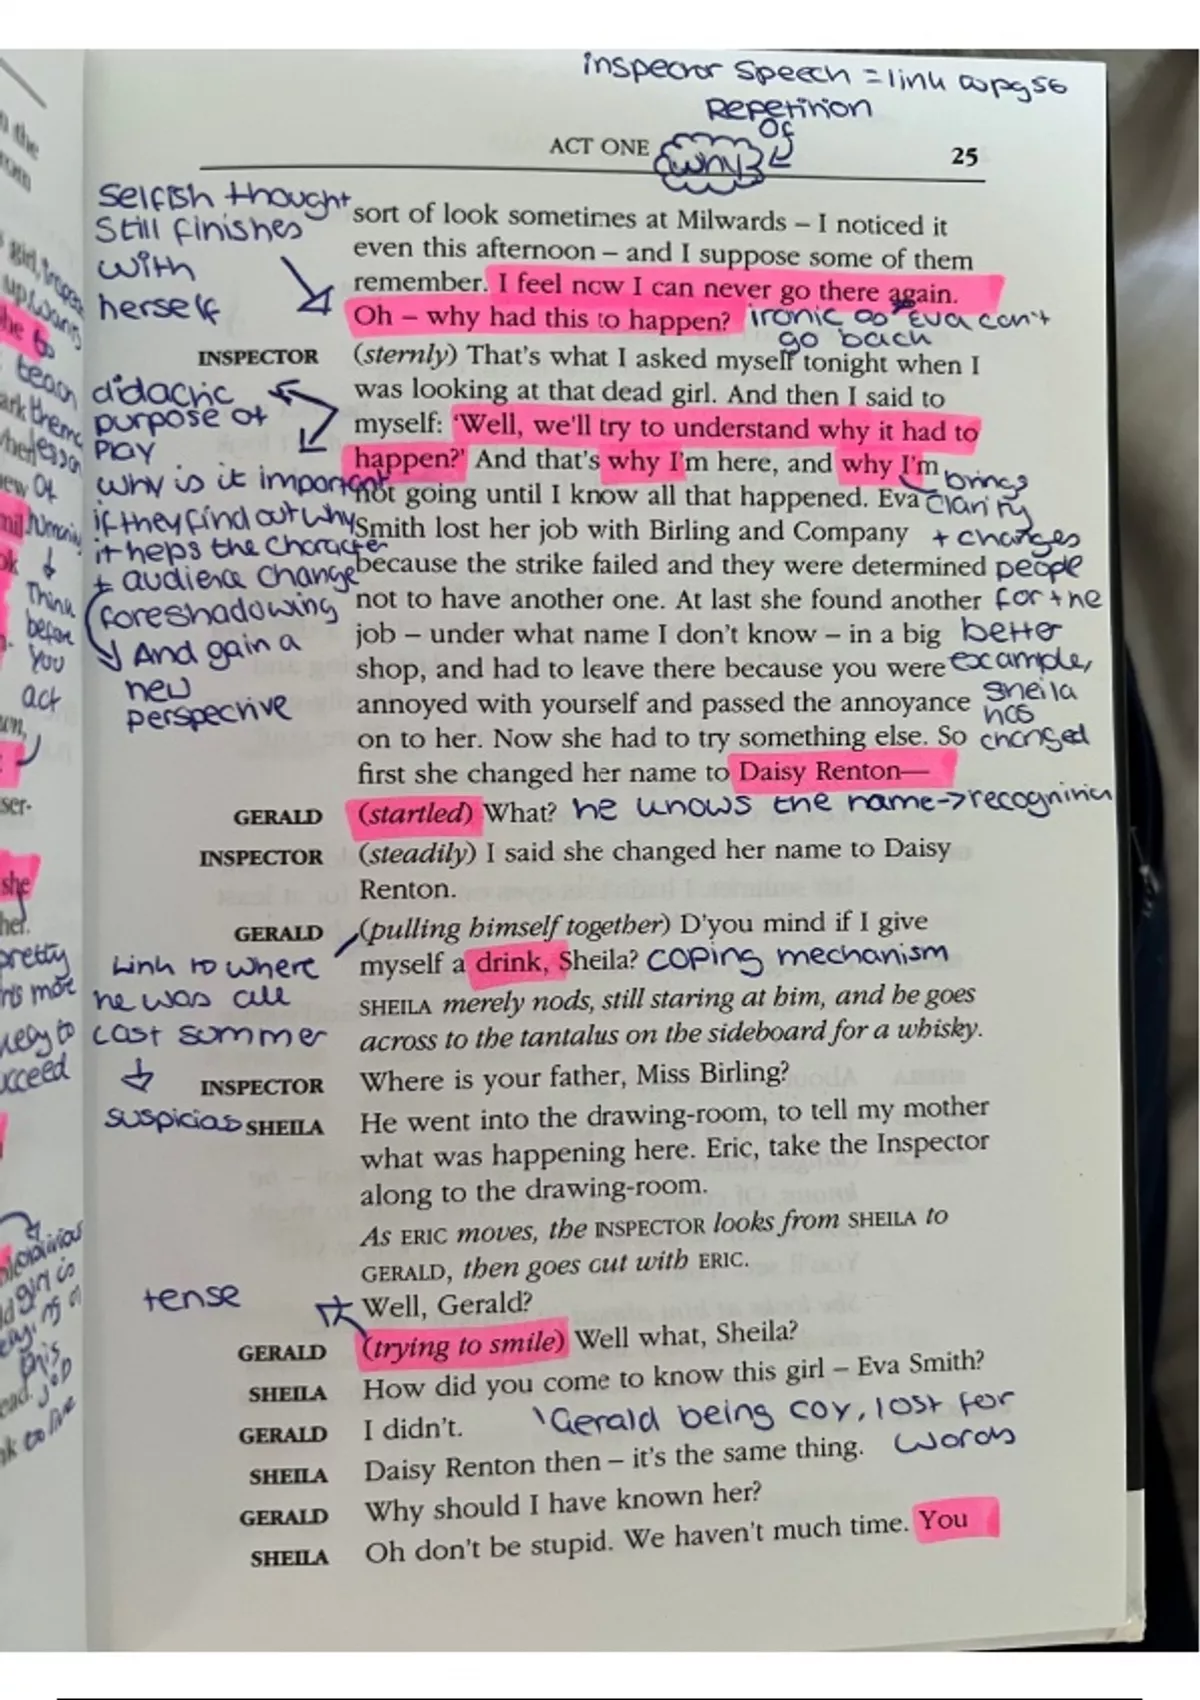 inspector speech = link to pg56
Repetition
of
why?
ACT ONE
25
Selfish thought
Still finishes
with
herself
sort of look sometimes at Milwards – I noticed it
even this afternoon – and I suppose some of them
remember. I feel now I can never go there again.
Oh – why had this to happen?
ironic as Eva can't
go back
INSPECTOR (sternly) That's what I asked myself tonight when I
was looking at that dead girl. And then I said to
myself: 'Well, we'll try to understand why it had to
happen?' And that's why I'm here, and why I'm
not going until I know all that happened. Eva
Smith lost her job with Birling and Company
because the strike failed and they were determined
not to have another one. At last she found another
job – under what name I don't know – in a big
shop, and had to leave there because you were
annoyed with yourself and passed the annoyance
on to her. Now she had to try something else. So
first she changed her name to Daisy Renton—
didactic
purpose of
play
why is it important
if they find out why
it heps the character
+ audience change
foreshadowing
And gain a
new
perspective
brings
clarity
+ changes
people
for the
better
example,
sheila
has
changed
GERALD (startled) What?
he knows the name->recognition
INSPECTOR (steadily) I said she changed her name to Daisy
Renton.
GERALD (pulling himself together) D'you mind if I give
myself a drink, Sheila?
coping mechanism
Link to where
he was all
last summer
suspicias
SHEILA merely nods, still staring at him, and he goes
across to the tantalus on the sideboard for a whisky.
INSPECTOR Where is your father, Miss Birling?
SHEILA He went into the drawing-room, to tell my mother
what was happening here. Eric, take the Inspector
along to the drawing-room.
As ERIC moves, the INSPECTOR looks from SHEILA to
GERALD, then goes out with ERIC.
Well, Gerald?
tense
GERALD (trying to smile) Well what, Sheila?
SHEILA How did you come to know this girl – Eva Smith?
GERALD I didn't.
Gerald being coy, lost for
words
SHEILA Daisy Renton then – it's the same thing.
GERALD Why should I have known her?
SHEILA Oh don't be stupid. We haven't much time. You
the
she
her.
pretty
Think
before
you
act